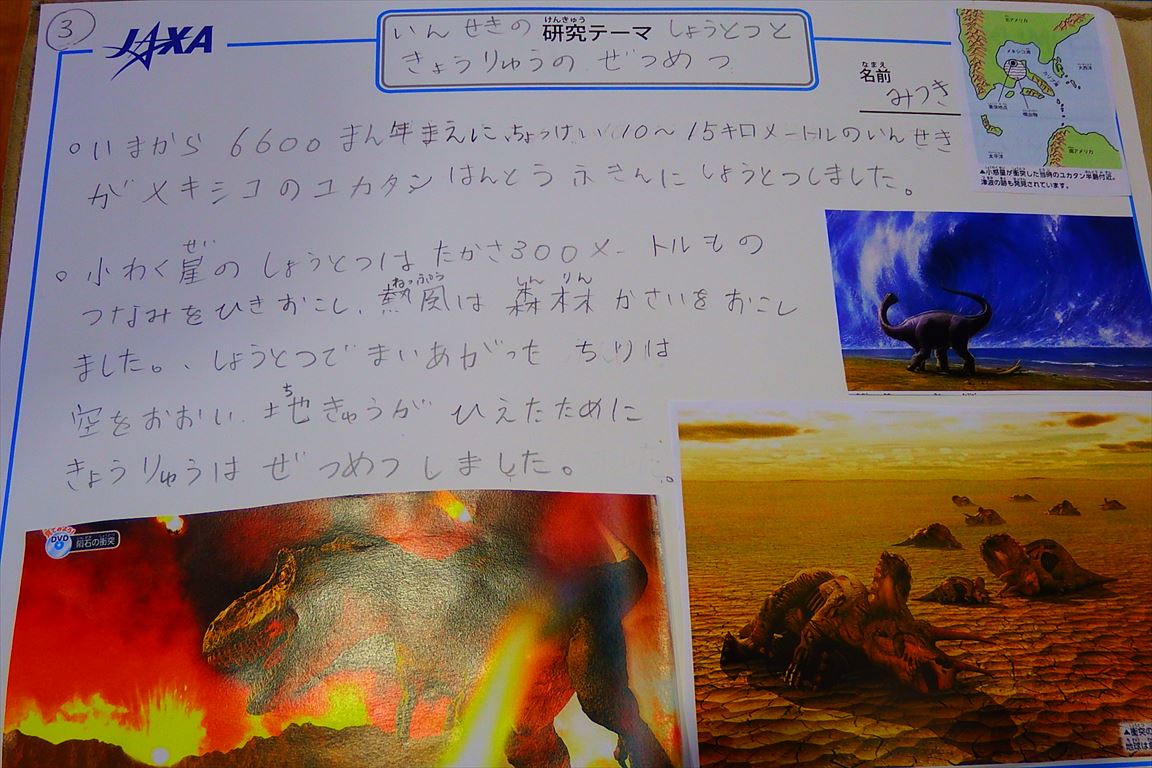 ③
JAXA
いんせきの 研究テーマ しょうとつと
けんきゅう
きょうりゅうの ぜつめつ
なまえ
名前
みつき
北アメリカ
メキシコ湾
大西洋
カリブ海
衝突地点
太平洋
南アメリカ
▲小惑星が衝突した当時のユカタン半島付近。
津波の跡も発見されています。
○いまから 6600まん年まえに、ちょっけい10〜15キロメートルのいんせき
がメキシコのユカタンはんとうふきんにしょうとつしました。
ぜい
○小わく星のしょうとつは たかさ300メートルもの
ねっぷう しん りん
つなみをひきおこし、熱風は森林かさいをおこし
ました。、しょうとつでまいあがった ちりは
ち
空をおおい、地きゅうが ひえたために
きょうりゅうは ぜつめつしました。
DVD
隕石の衝突
▲衝突の
地球は